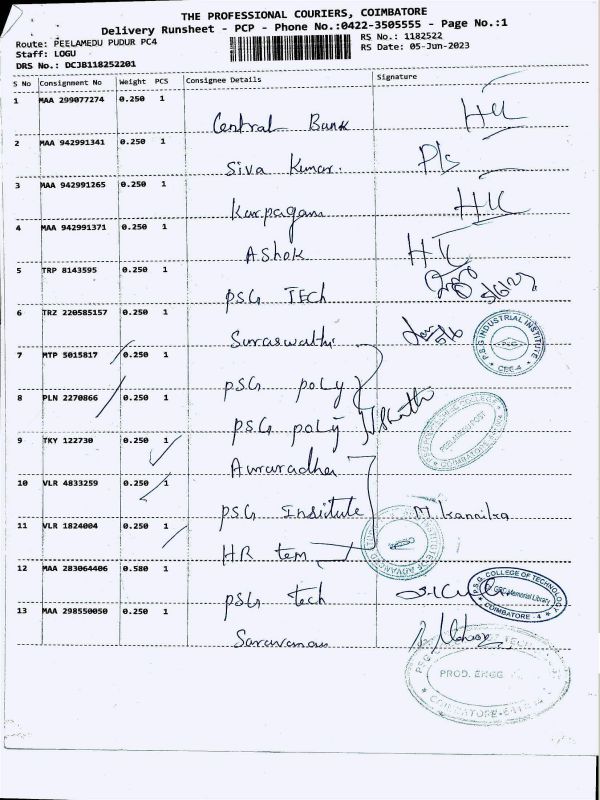 THE PROFESSIONAL COURIERS, COIMBATORE
Delivery Runsheet - PCP - Phone No.:0422-3505555 - Page No.:1
Route: PEELAMEDU PUDUR PC4
Staff: LOGU
DRS No.: DCJB118252201
RS No.: 1182522
RS Date: 05-Jun-2023
S No Consignment No Weight PCS Consignee Details Signature
1 MAA 299077274 0.250 1 Central Bank
2 MAA 942991341 0.250 1 Siva Kumar.
3 MAA 942991265 0.250 1 Karpagam
4 MAA 942991371 0.250 1 Ashok
5 TRP 8143595 0.250 1 PSG TECH 5/6/23
6 TRZ 220585157 0.250 1
P.S.G INDUSTRIAL INSTITUTE
CBE-4
7 MTP 5015817 0.250 1 PSG poly
8 PLN 2270866 0.250 1 PSG poly
PEELAMEDU POST
9 TKY 122730 0.250 1
10 VLR 4833259 0.250 1 PSG Insitute M. Kannika
11 VLR 1824004 0.250 1 HR tem
12 MAA 283064406 0.580 1 PSG tech
P.S.G. COLLEGE OF TECHNOLOGY
GRD Memorial Library
COIMBATORE - 4
13 MAA 298550050 0.250 1
PROD. ENGG